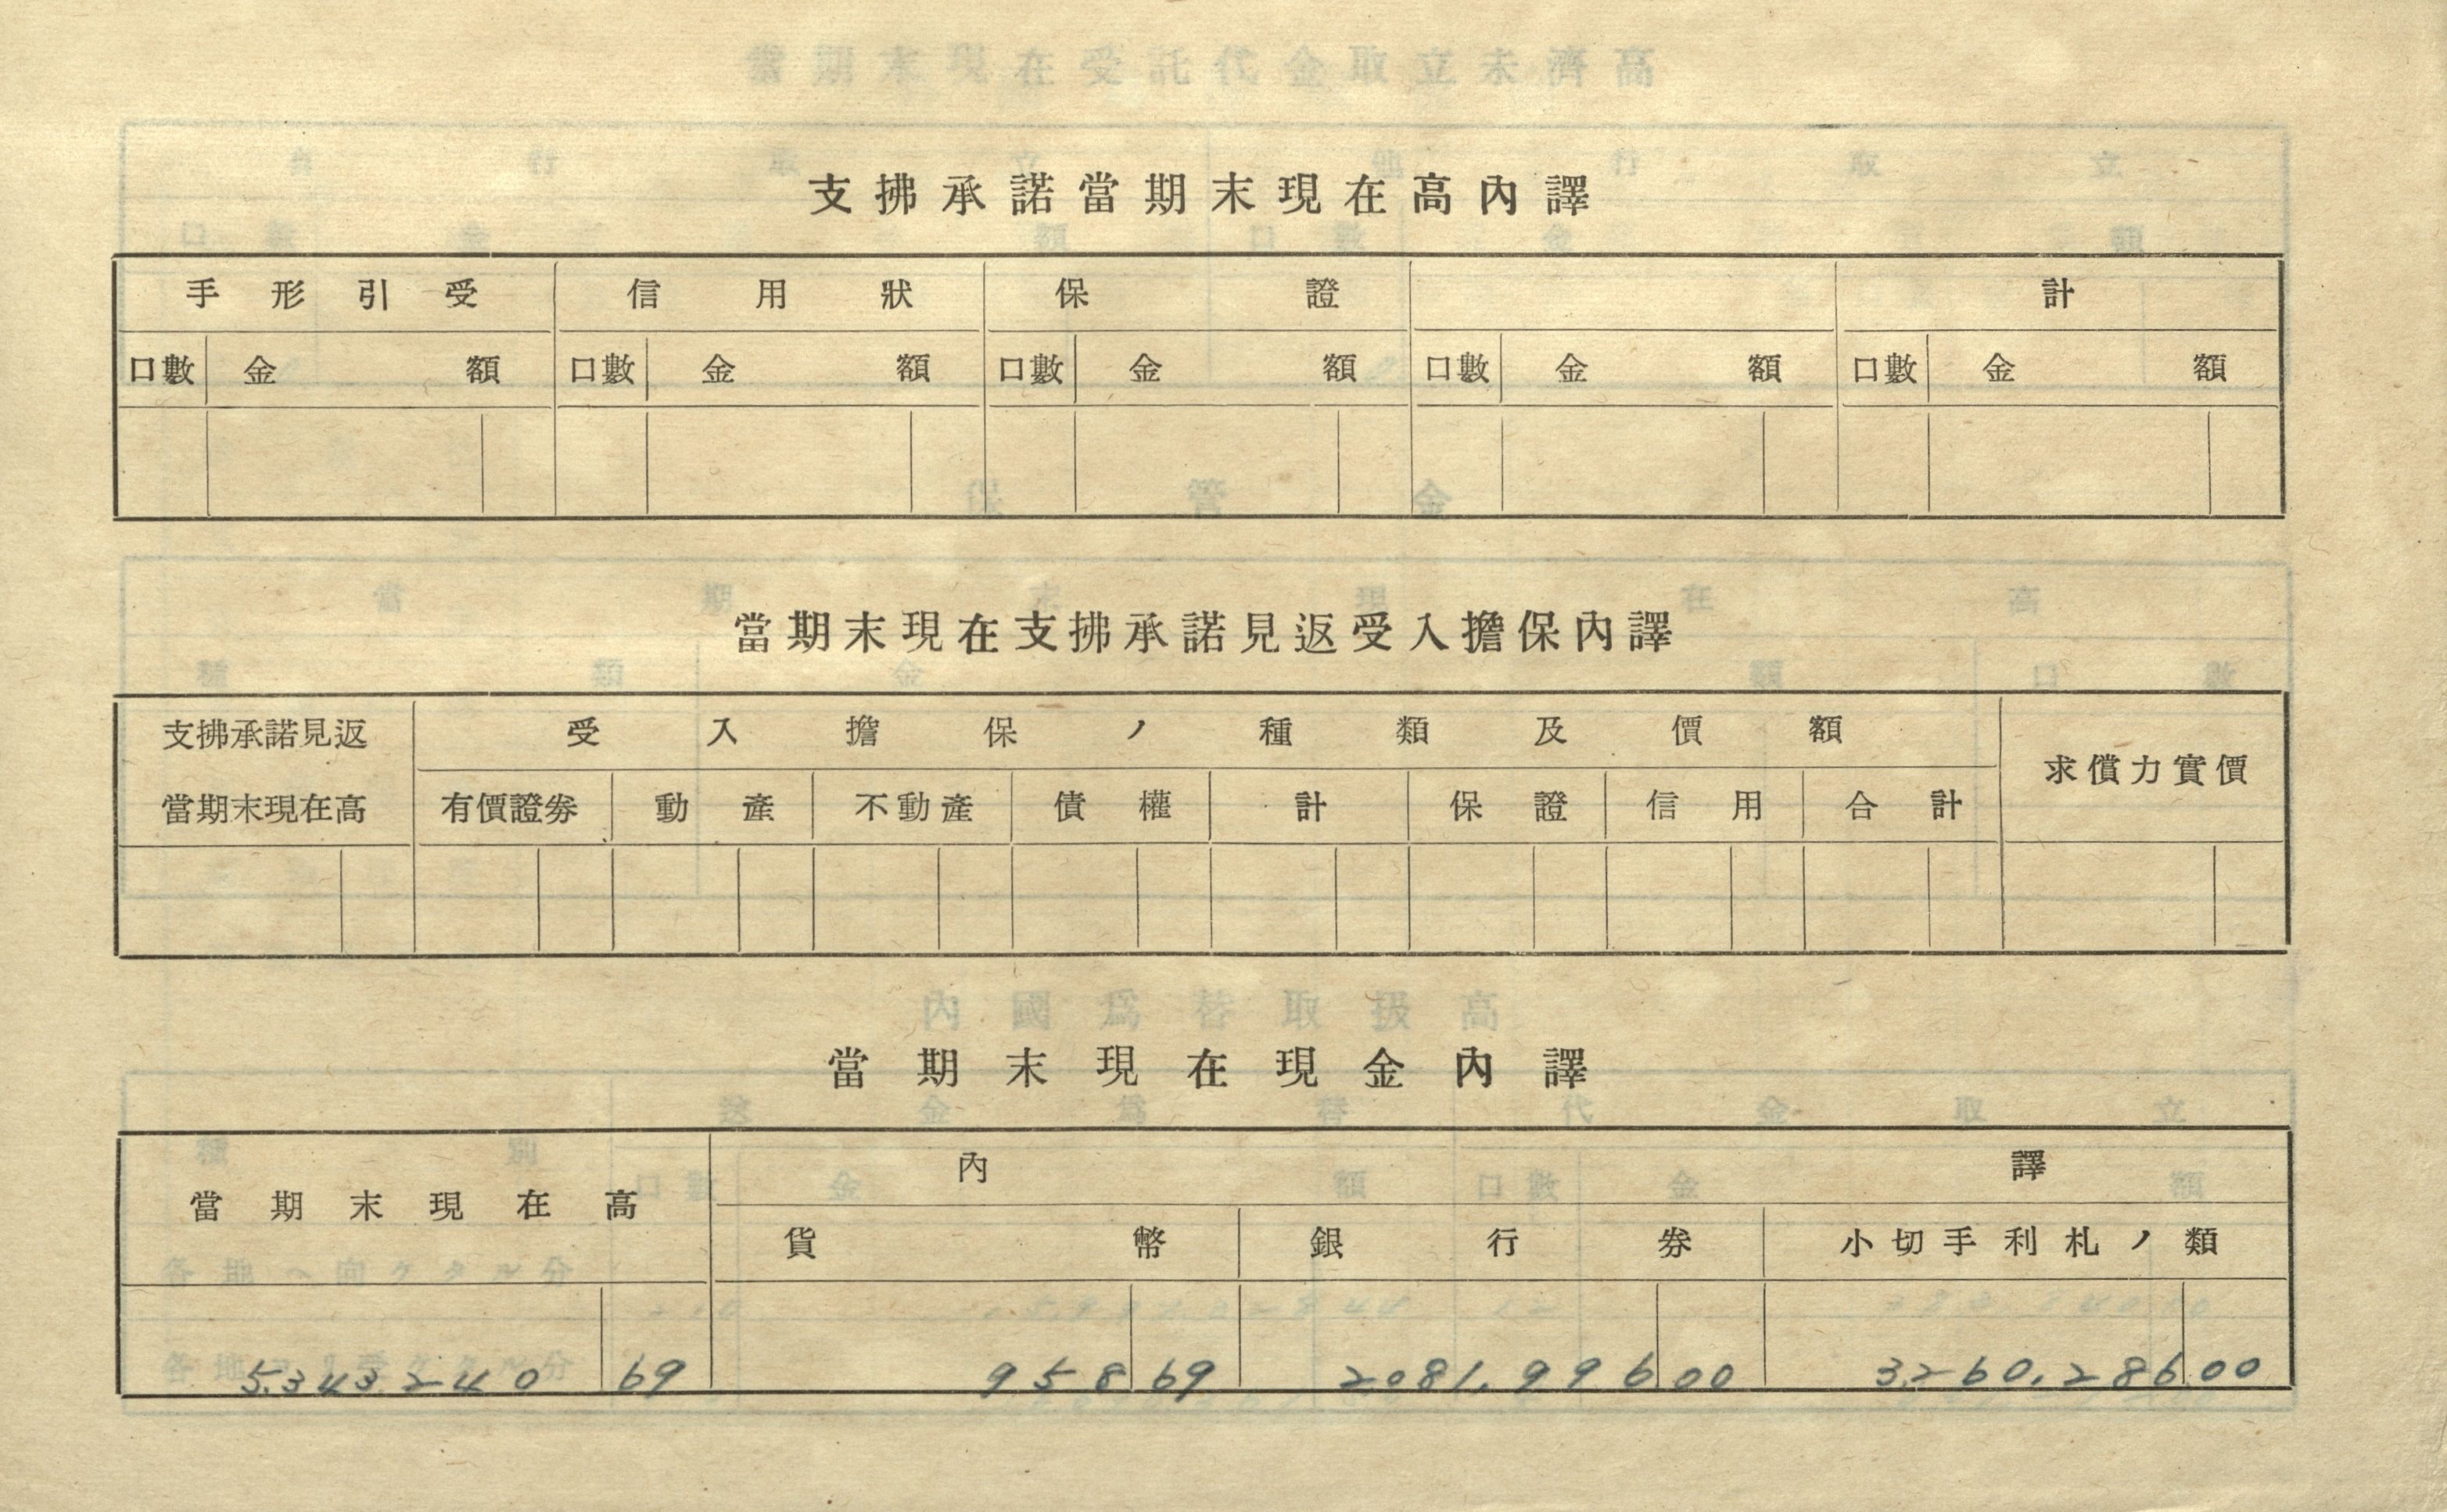 支拂承諾當期末現在高內譯
手形引受 信用狀 保證 計
口數 金額 口數 金額 口數 金額 口數 金額 口數 金額
當期末現在支拂承諾見返受入擔保內譯
支拂承諾見返當期末現在高 受入擔保ノ種類及價額 求償力實價
有價證券 動產 不動產 債權 計 保證 信用 合計
當期末現在現金內譯
當期末現在高 內譯
貨幣 銀行券 小切手利札ノ類
5.343.240 69 958 69 2081.996 00 3.260.286 00